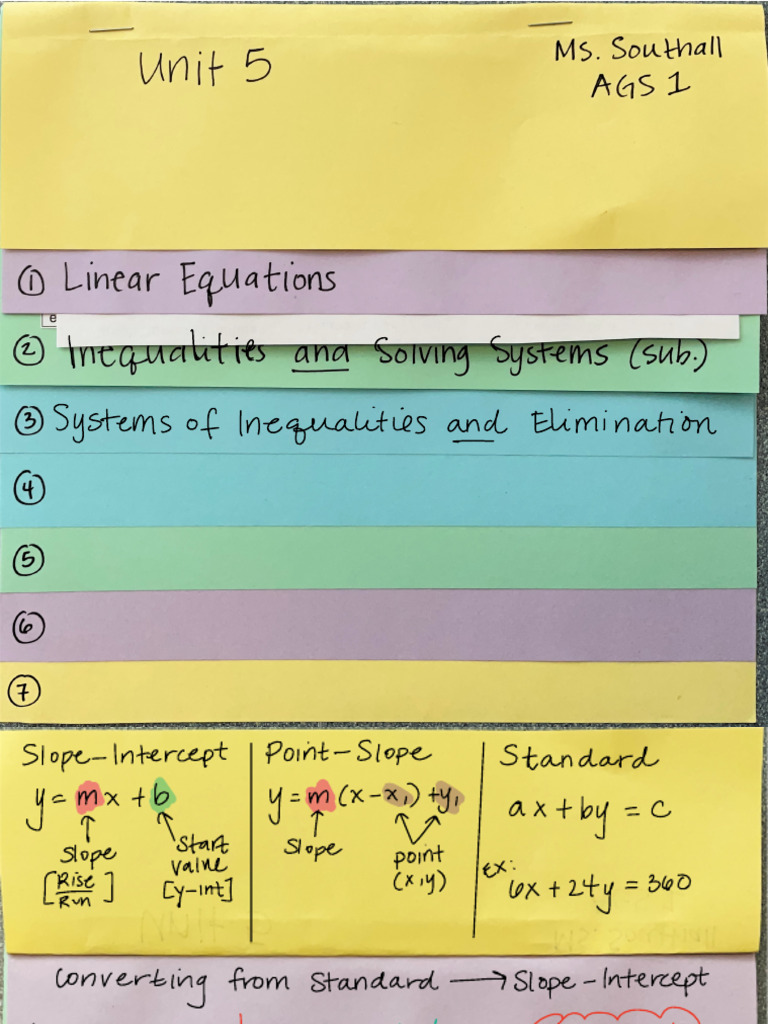 Unit 5
Ms. Southall
AGS 1
① Linear Equations
② Inequalities and Solving Systems (sub.)
③ Systems of Inequalities and Elimination
④
⑤
⑥
⑦
Slope-Intercept
y = mx + b
Slope
[Rise/Run]
Start
value
[y-int]
Point-Slope
y = m(x-x₁)+y₁
Slope
point
(x,y)
Standard
ax + by = c
ex:
6x + 24y = 360
Converting from Standard → Slope-Intercept